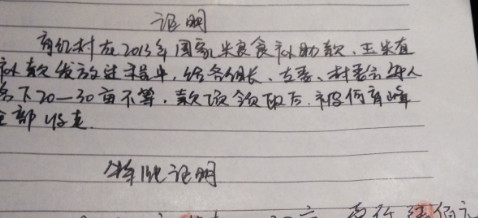 证明
有红村在2013年国家米良食补助款、玉米直
补款发放过程中，给各组长、支委、村委会每人
名下20—30亩不等，款项领取后，被何有峰
全部收走.
特此证明